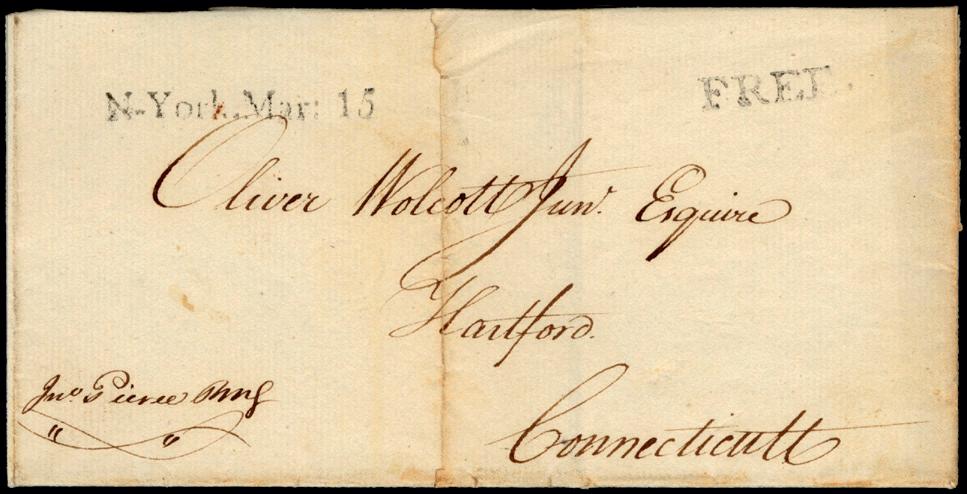 N-York. Mar: 15
FREE.
Oliver Wolcott Junr. Esquire
Hartford.
Connecticutt
Jno Pierce PMG
" "